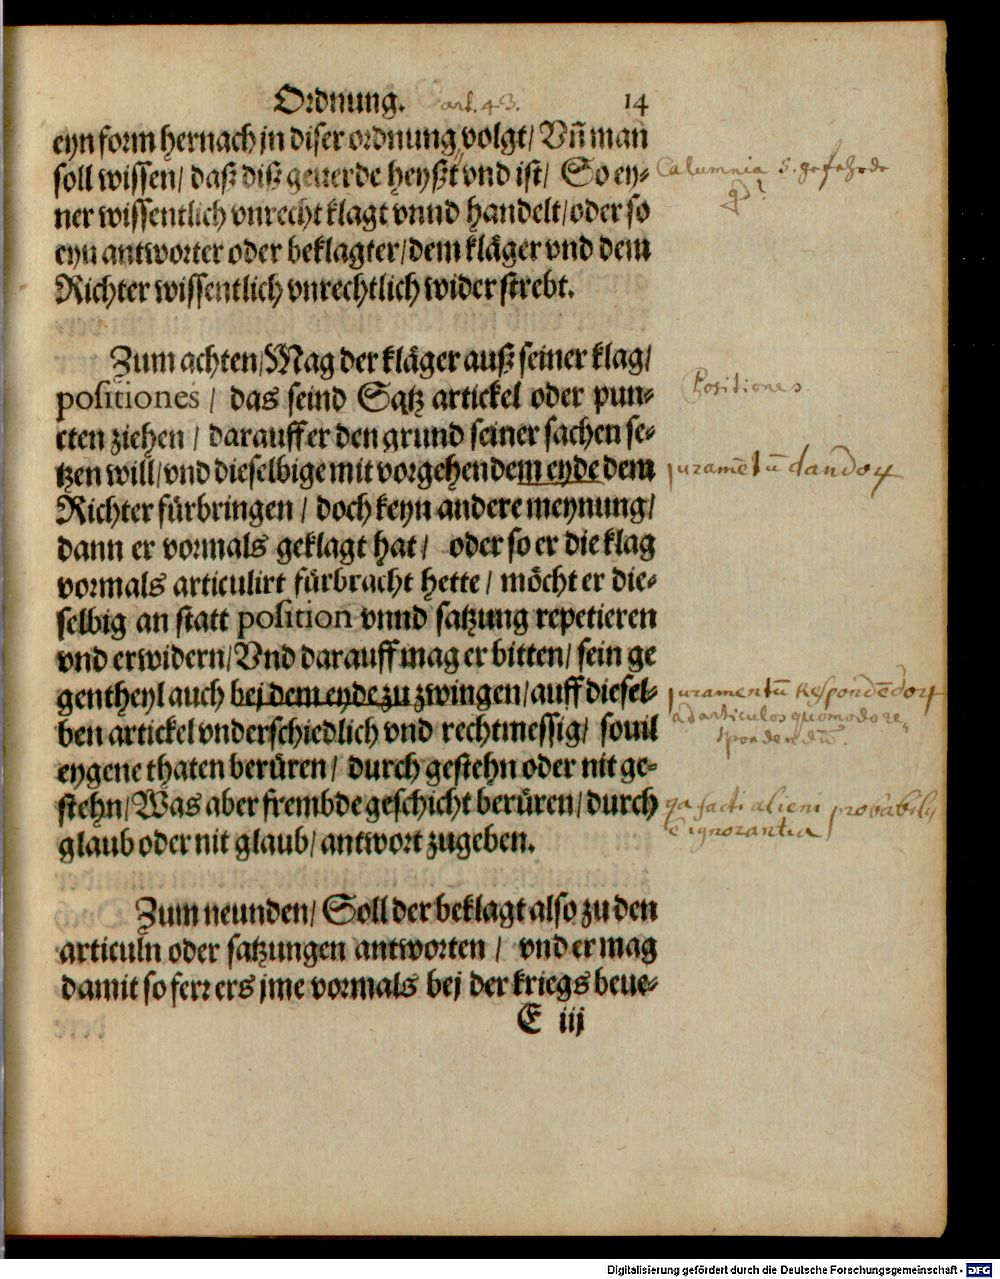 Ordnung. art. 43. 14
eyn form hernach jn diser ordnung volgt/ Vñ man
soll wissen/ daß diß geuerde heyßt vnd ist/ So ey-
Calumnia s. gefahrde
ner wissentlich vnrecht klagt vnnd handelt/ oder so
eyn antworter oder beklagter/ dem kläger vnd dem
Richter wissentlich vnrechtlich widerstrebt.
Zum achten/ Mag der kläger auß seiner klag/
positiones / das seind Satz artickel oder pun-
Positiones
cten ziehen / darauff er den grund seiner sachen se-
tzen will/ vnd dieselbige mit vorgehendem eyde dem
juramētū dandorꝝ
Richter fürbringen / doch keyn andere meynung/
dann er vormals geklagt hat/ oder so er die klag
vormals articulirt fürbracht hette / möcht er die-
selbig an statt position vnnd satzung repetieren
vnd erwidern/ Vnd darauff mag er bitten/ sein ge
gentheyl auch bej dem eyde zu zwingen/ auff diesel-
juramentū Respondēdorꝝ
ben artickel vnderschiedlich vnd rechtmessig/ souil
ad articulos quomodo re-
spondendū.
eygene thaten berüren / durch gestehn oder nit ge-
stehn/ Was aber frembde geschicht berüren/ durch
qa facti alieni probabilis
ē ignorantia
glaub oder nit glaub/ antwort zugeben.
Zum neunden/ Soll der beklagt also zu den
articuln oder satzungen antworten / vnd er mag
damit so ferr ers jme vormals bej der kriegs beue-
E iij
Digitalisierung gefördert durch die Deutsche Forschungsgemeinschaft - DFG